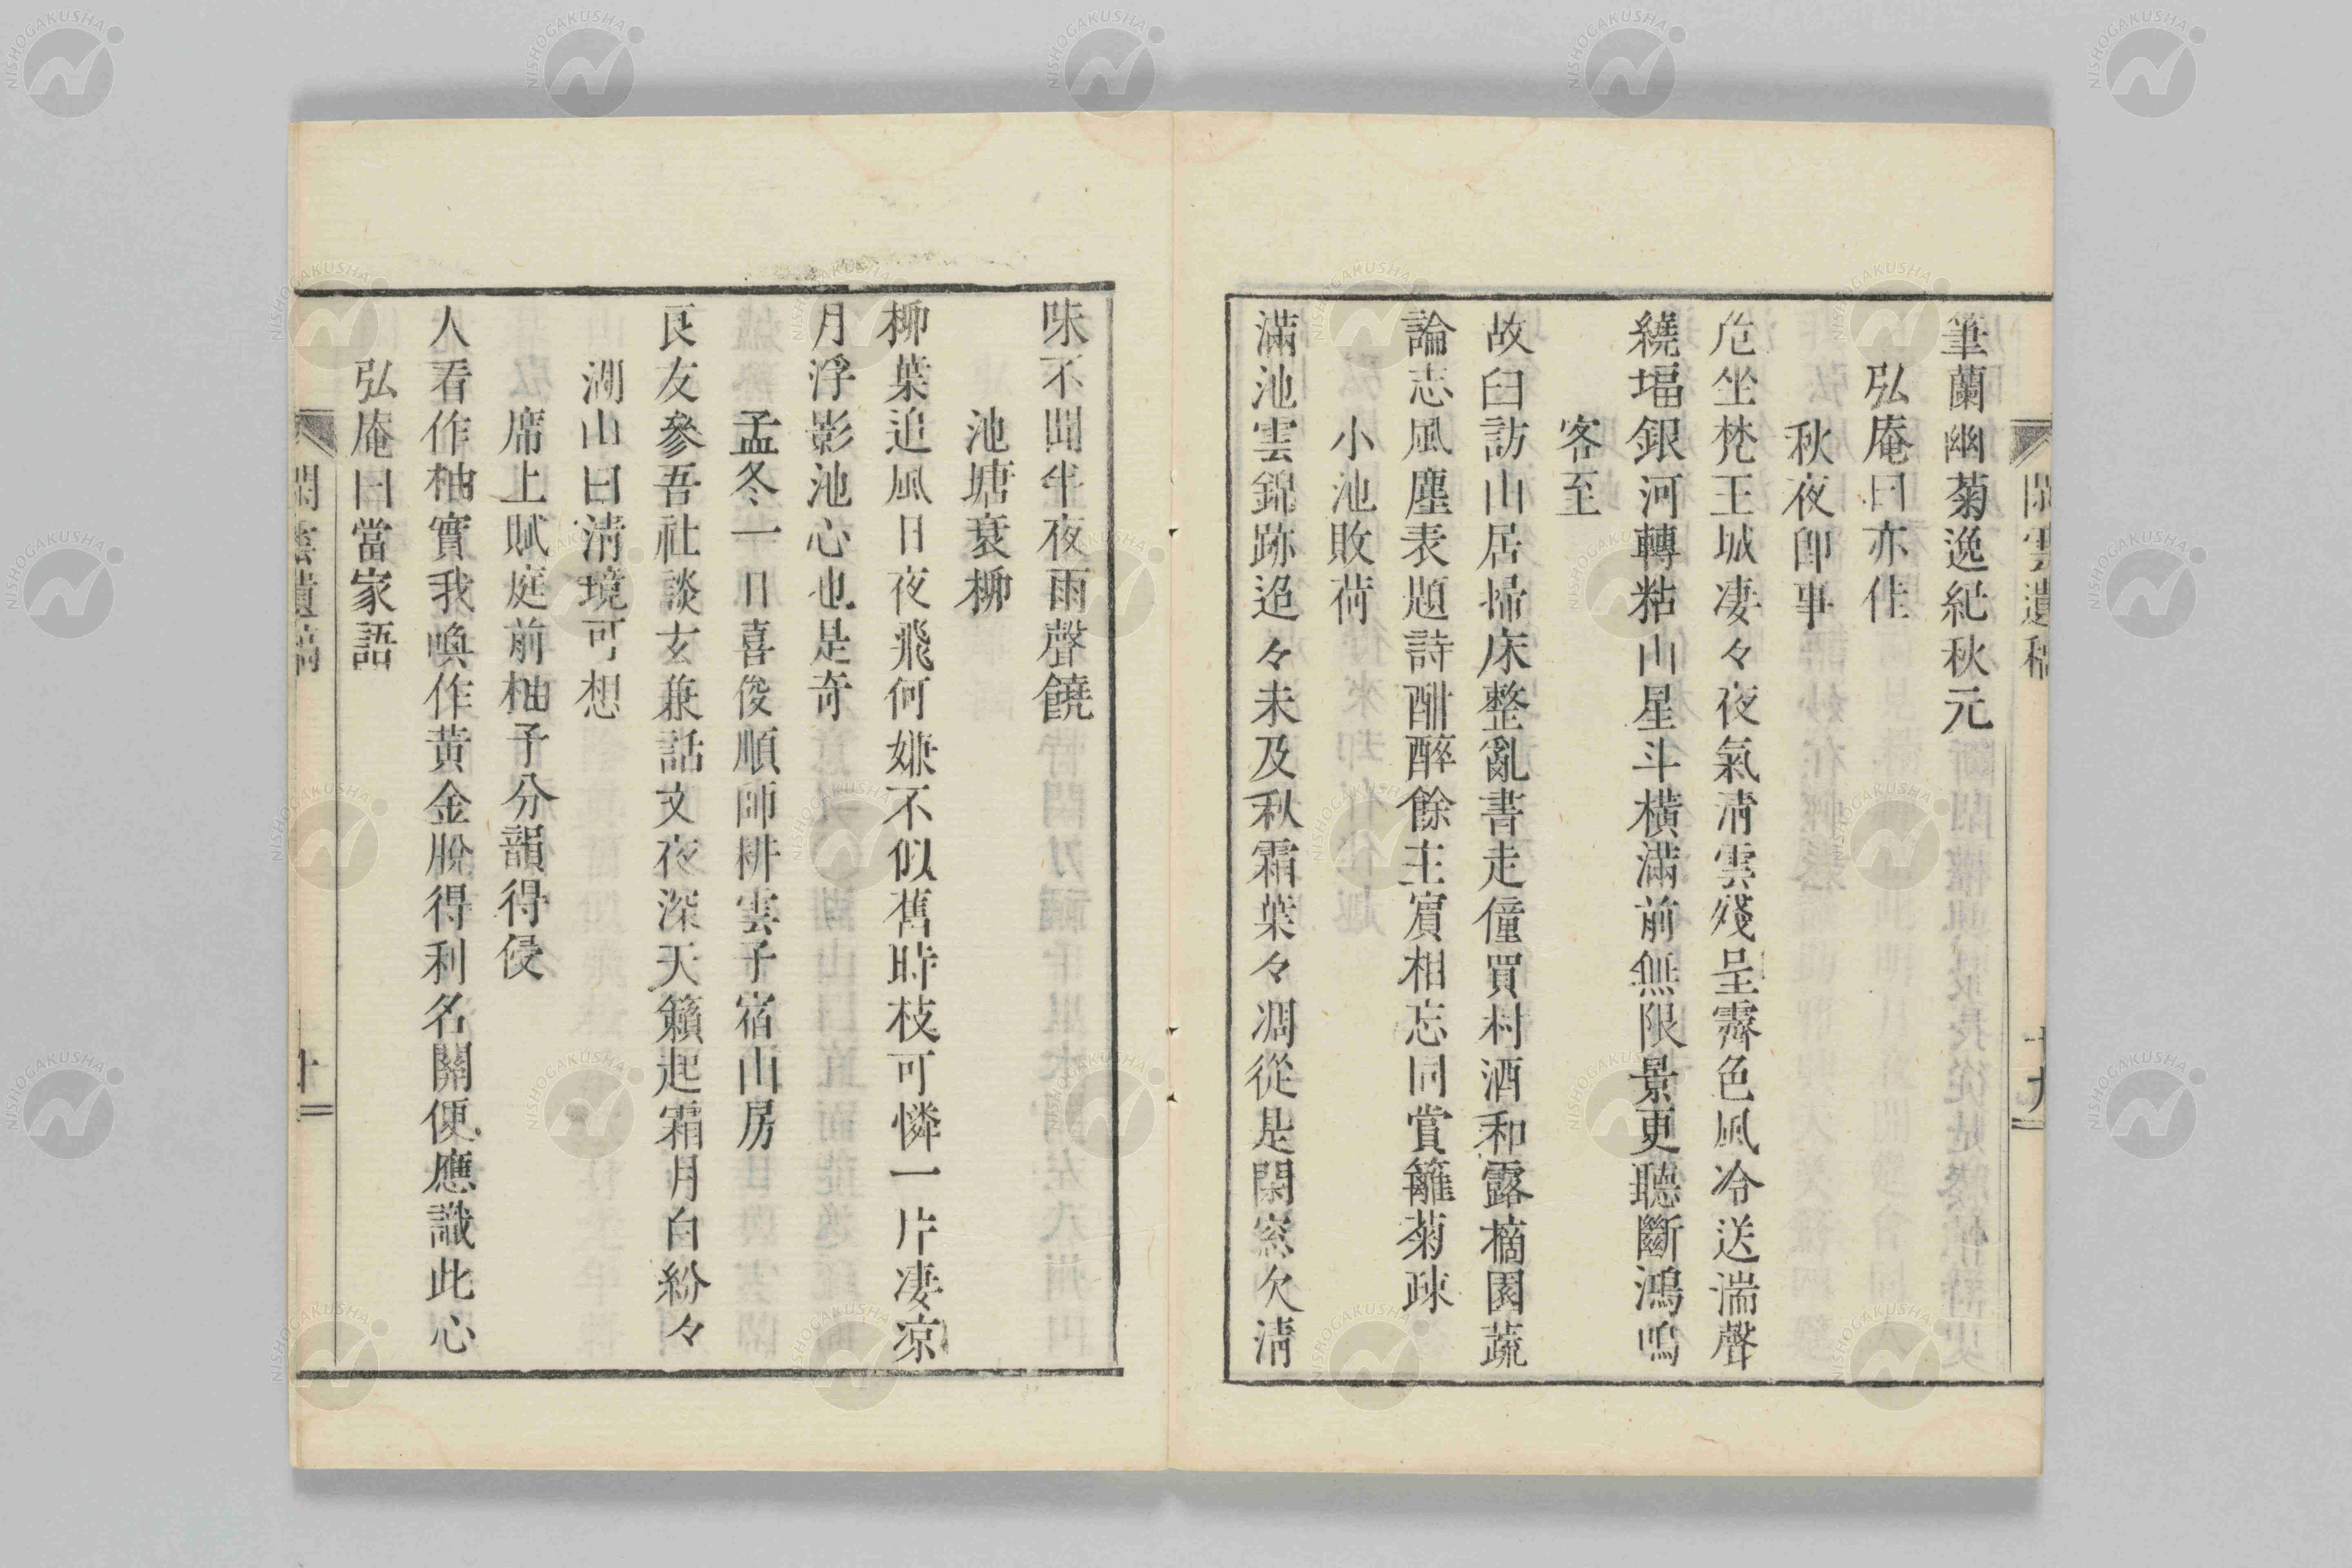 閒雲遺稿
十九
筆蘭幽菊逸紀秋元
弘庵曰亦佳
秋夜卽事
危坐梵王城凄々夜氣淸雲殘呈霽色風冷送湍聲
繞堛銀河轉粘山星斗橫滿前無限景更聽斷鴻鳴
客至
故臼訪山居掃床整亂書走僮買村酒和露摘園蔬
論志風塵表題詩酣醉餘主賓相忘同賞籬菊疎
小池敗荷
滿池雲錦跡迢々未及秋霜葉々凋從是閑窓欠淸
味不聞半夜雨聲饒
池塘衰柳
柳葉追風日夜飛何嫌不似舊時枝可憐一片凄凉
月浮影池心也是奇
孟冬一日喜俊順師耕雲子宿山房
良友參吾社談玄兼話文夜深天籟起霜月白紛々
湖山曰淸境可想
席上賦庭前柚子分韻得侵
人看作柚實我喚作黃金脫得利名關便應識此心
弘庵曰當家語
閒雲遺稿
NISHOGAKUSHA